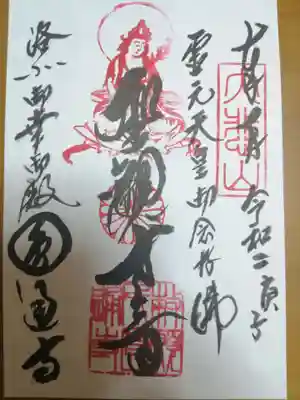 令和二庚子
大悲山
霊元天皇御念持佛
聖観世音
洛北御幸御殿
圓通寺